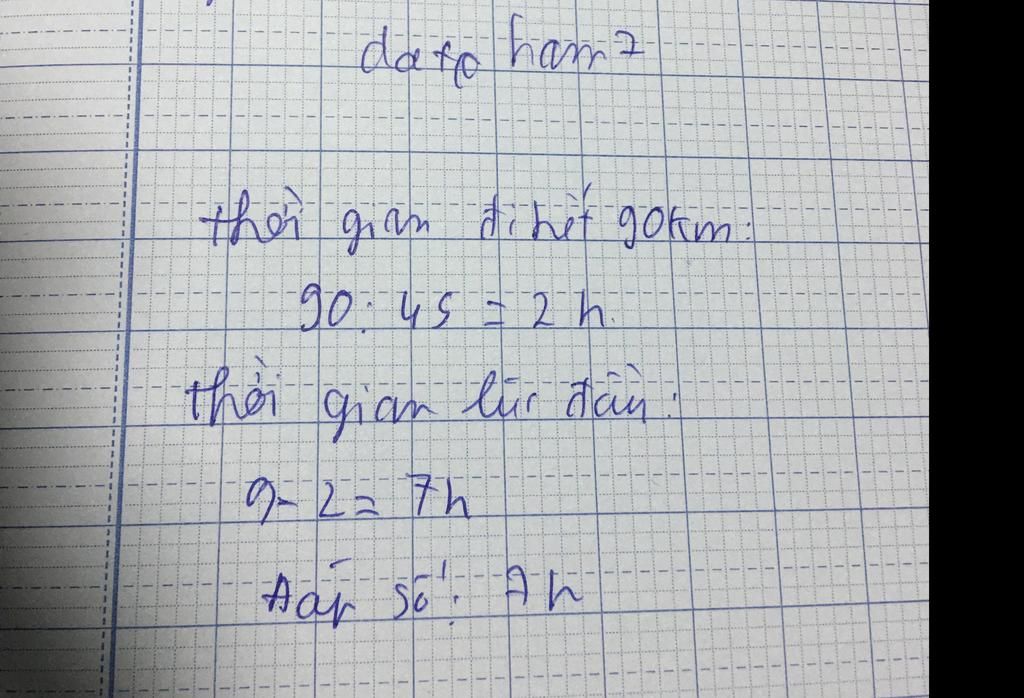 thời gian đi hết 90km:
90: 45 = 2 h.
thời gian lúc đầu:
9- 2 = 7h
Đáp số: 7h